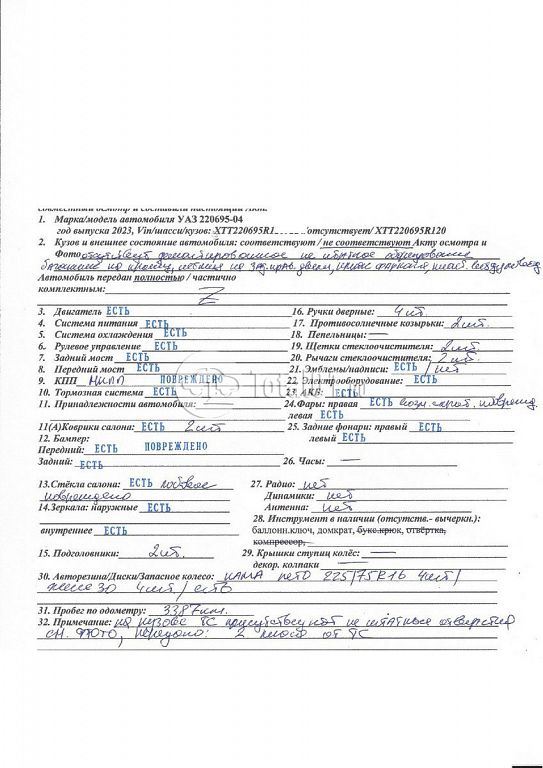 совместный осмотр и составили настоящий Акт.
1. Марка/модель автомобиля УАЗ 220695-04
год выпуска 2023, Vin/шасси/кузов: XTT220695R1_______/отсутствует/ XTT220695R120
2. Кузов и внешнее состояние автомобиля: соответствуют / не соответствуют Акту осмотра и
Фото отсутствует не штатное оборудование
багажник на крыше, лестница на
Автомобиль передан полностью / частично
комплектным: Z
3. Двигатель ЕСТЬ 16. Ручки дверные: 4 шт.
4. Система питания ЕСТЬ 17. Противосолнечные козырьки: 2 шт.
5. Система охлаждения ЕСТЬ 18. Пепельницы: —
6. Рулевое управление ЕСТЬ 19. Щетки стеклоочистителя: 2 шт
7. Задний мост ЕСТЬ 20. Рычаги стеклоочистителя: 2 шт.
8. Передний мост ЕСТЬ 21. Эмблемы/надписи: ЕСТЬ / нет
9. КПП МКПП ПОВРЕЖДЕНО 22. Электрооборудование: ЕСТЬ
10. Тормозная система ЕСТЬ 23. АКБ: ЕСТЬ
11. Принадлежности автомобиля: 24. Фары: правая ЕСТЬ возм. скрыт. поврежд.
левая ЕСТЬ
11(А)Коврики салона: ЕСТЬ 2 шт 25. Задние фонари: правый ЕСТЬ
12. Бампер: левый ЕСТЬ
Передний: ЕСТЬ ПОВРЕЖДЕНО
Задний: ЕСТЬ 26. Часы: —
13.Стёкла салона: ЕСТЬ лобовое 27. Радио: нет
повреждено Динамики: нет
14.Зеркала: наружные ЕСТЬ Антенна: нет
28. Инструмент в наличии (отсутств.- вычеркн.):
внутреннее ЕСТЬ баллонн.ключ, домкрат, букс.крюк, отвёртка,
компрессор,
15. Подголовники: 2 шт. 29. Крышки ступиц колёс: —
декор. колпаки —
30. Авторезина/Диски/Запасное колесо: КАМА лето 225/75R16 4 шт/
4 шт/
31. Пробег по одометру: 3387 км.
32. Примечание: на кузове ТС присутствуют не штатные отверстия
см. фото, передано: 2 ключа от ТС